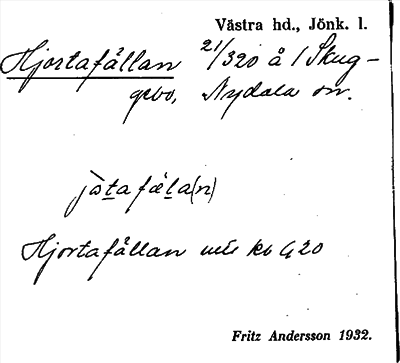 Västra hd., Jönk. l.
Hjortafållan 21/320 å 1 Skug-
gebo, Nydala sn.
jo̊tafål̲a(n)
Hjortafållan
Fritz Andersson 1932.